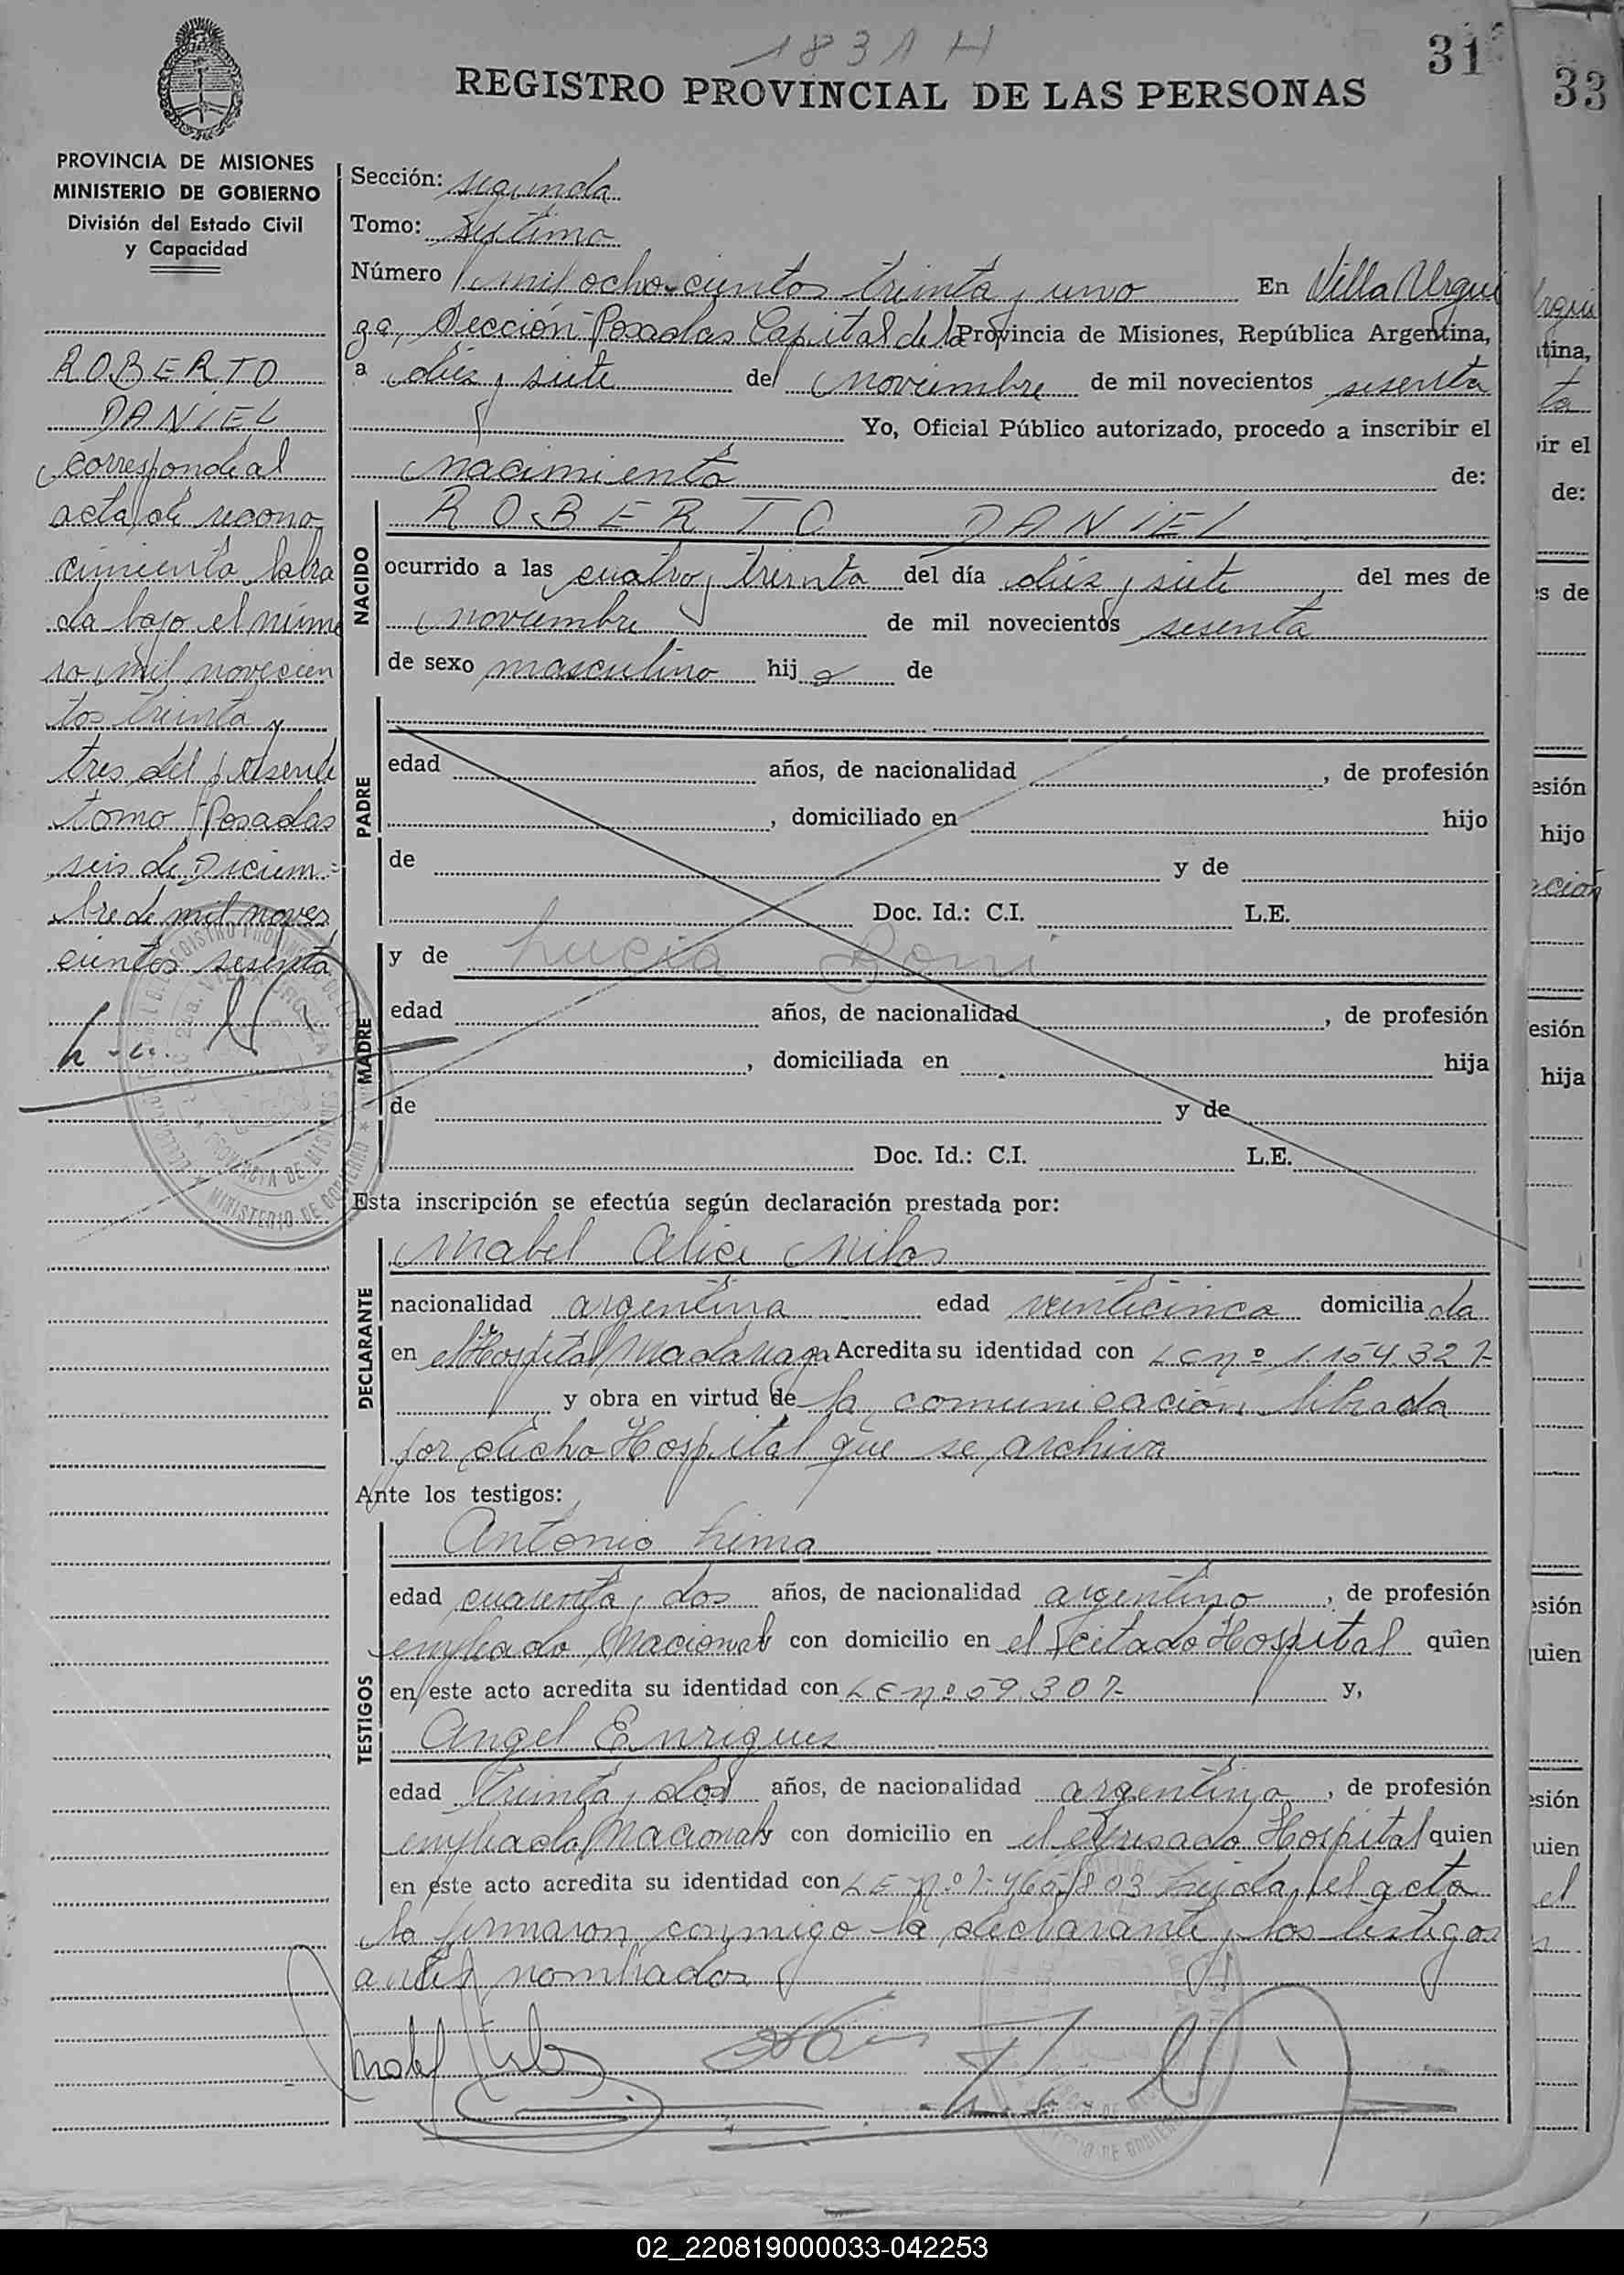 1831 H
31
33
REGISTRO PROVINCIAL DE LAS PERSONAS
PROVINCIA DE MISIONES
MINISTERIO DE GOBIERNO
División del Estado Civil
y Capacidad
ROBERTO
DANIEL
corresponde al
acta de recono-
cimiento labra
da bajo el núme
ro mil novecien
tos treinta y
tres del presente
tomo Posadas
seis de Diciem=
bre de mil noves
cientos sesenta
Sección: segunda
Tomo: Septimo
Número mil ochocientos treinta y uno En Villa Urqui
za, Sección Posadas Capital de la Provincia de Misiones, República Argentina,
a diez y siete de noviembre de mil novecientos sesenta
Yo, Oficial Público autorizado, procedo a inscribir el
nacimiento de:
NACIDO
ROBERTO DANIEL
ocurrido a las cuatro y treinta del día diez y siete del mes de
noviembre de mil novecientos sesenta
de sexo masculino hij o de
PADRE
edad años, de nacionalidad , de profesión
, domiciliado en hijo
de y de
Doc. Id.: C.I. L.E.
MADRE
y de Lucia Boni
edad años, de nacionalidad , de profesión
, domiciliada en hija
de y de
Doc. Id.: C.I. L.E.
Esta inscripción se efectúa según declaración prestada por:
DECLARANTE
Mabel Alice Milos
nacionalidad argentina edad veinticinco domicilia da
en el Hospital Madariaga Acredita su identidad con L C nº 1.154.327-
y obra en virtud de la comunicación librada
por dicho Hospital que se archiva
Ante los testigos:
TESTIGOS
Antonio Lima
edad cuarenta y dos años, de nacionalidad argentino, de profesión
empleado Nacional con domicilio en el citado Hospital quien
en este acto acredita su identidad con L E nº 59.307- y,
Angel Enriquez
edad treinta y dos años, de nacionalidad argentino, de profesión
empleado Nacional con domicilio en el expresado Hospital quien
en este acto acredita su identidad con L E nº 7.460.803 Leida el acta
la firmaron conmigo la declarante y los testigos
antes nombrados
Mabel Milos
02_220819000033-042253